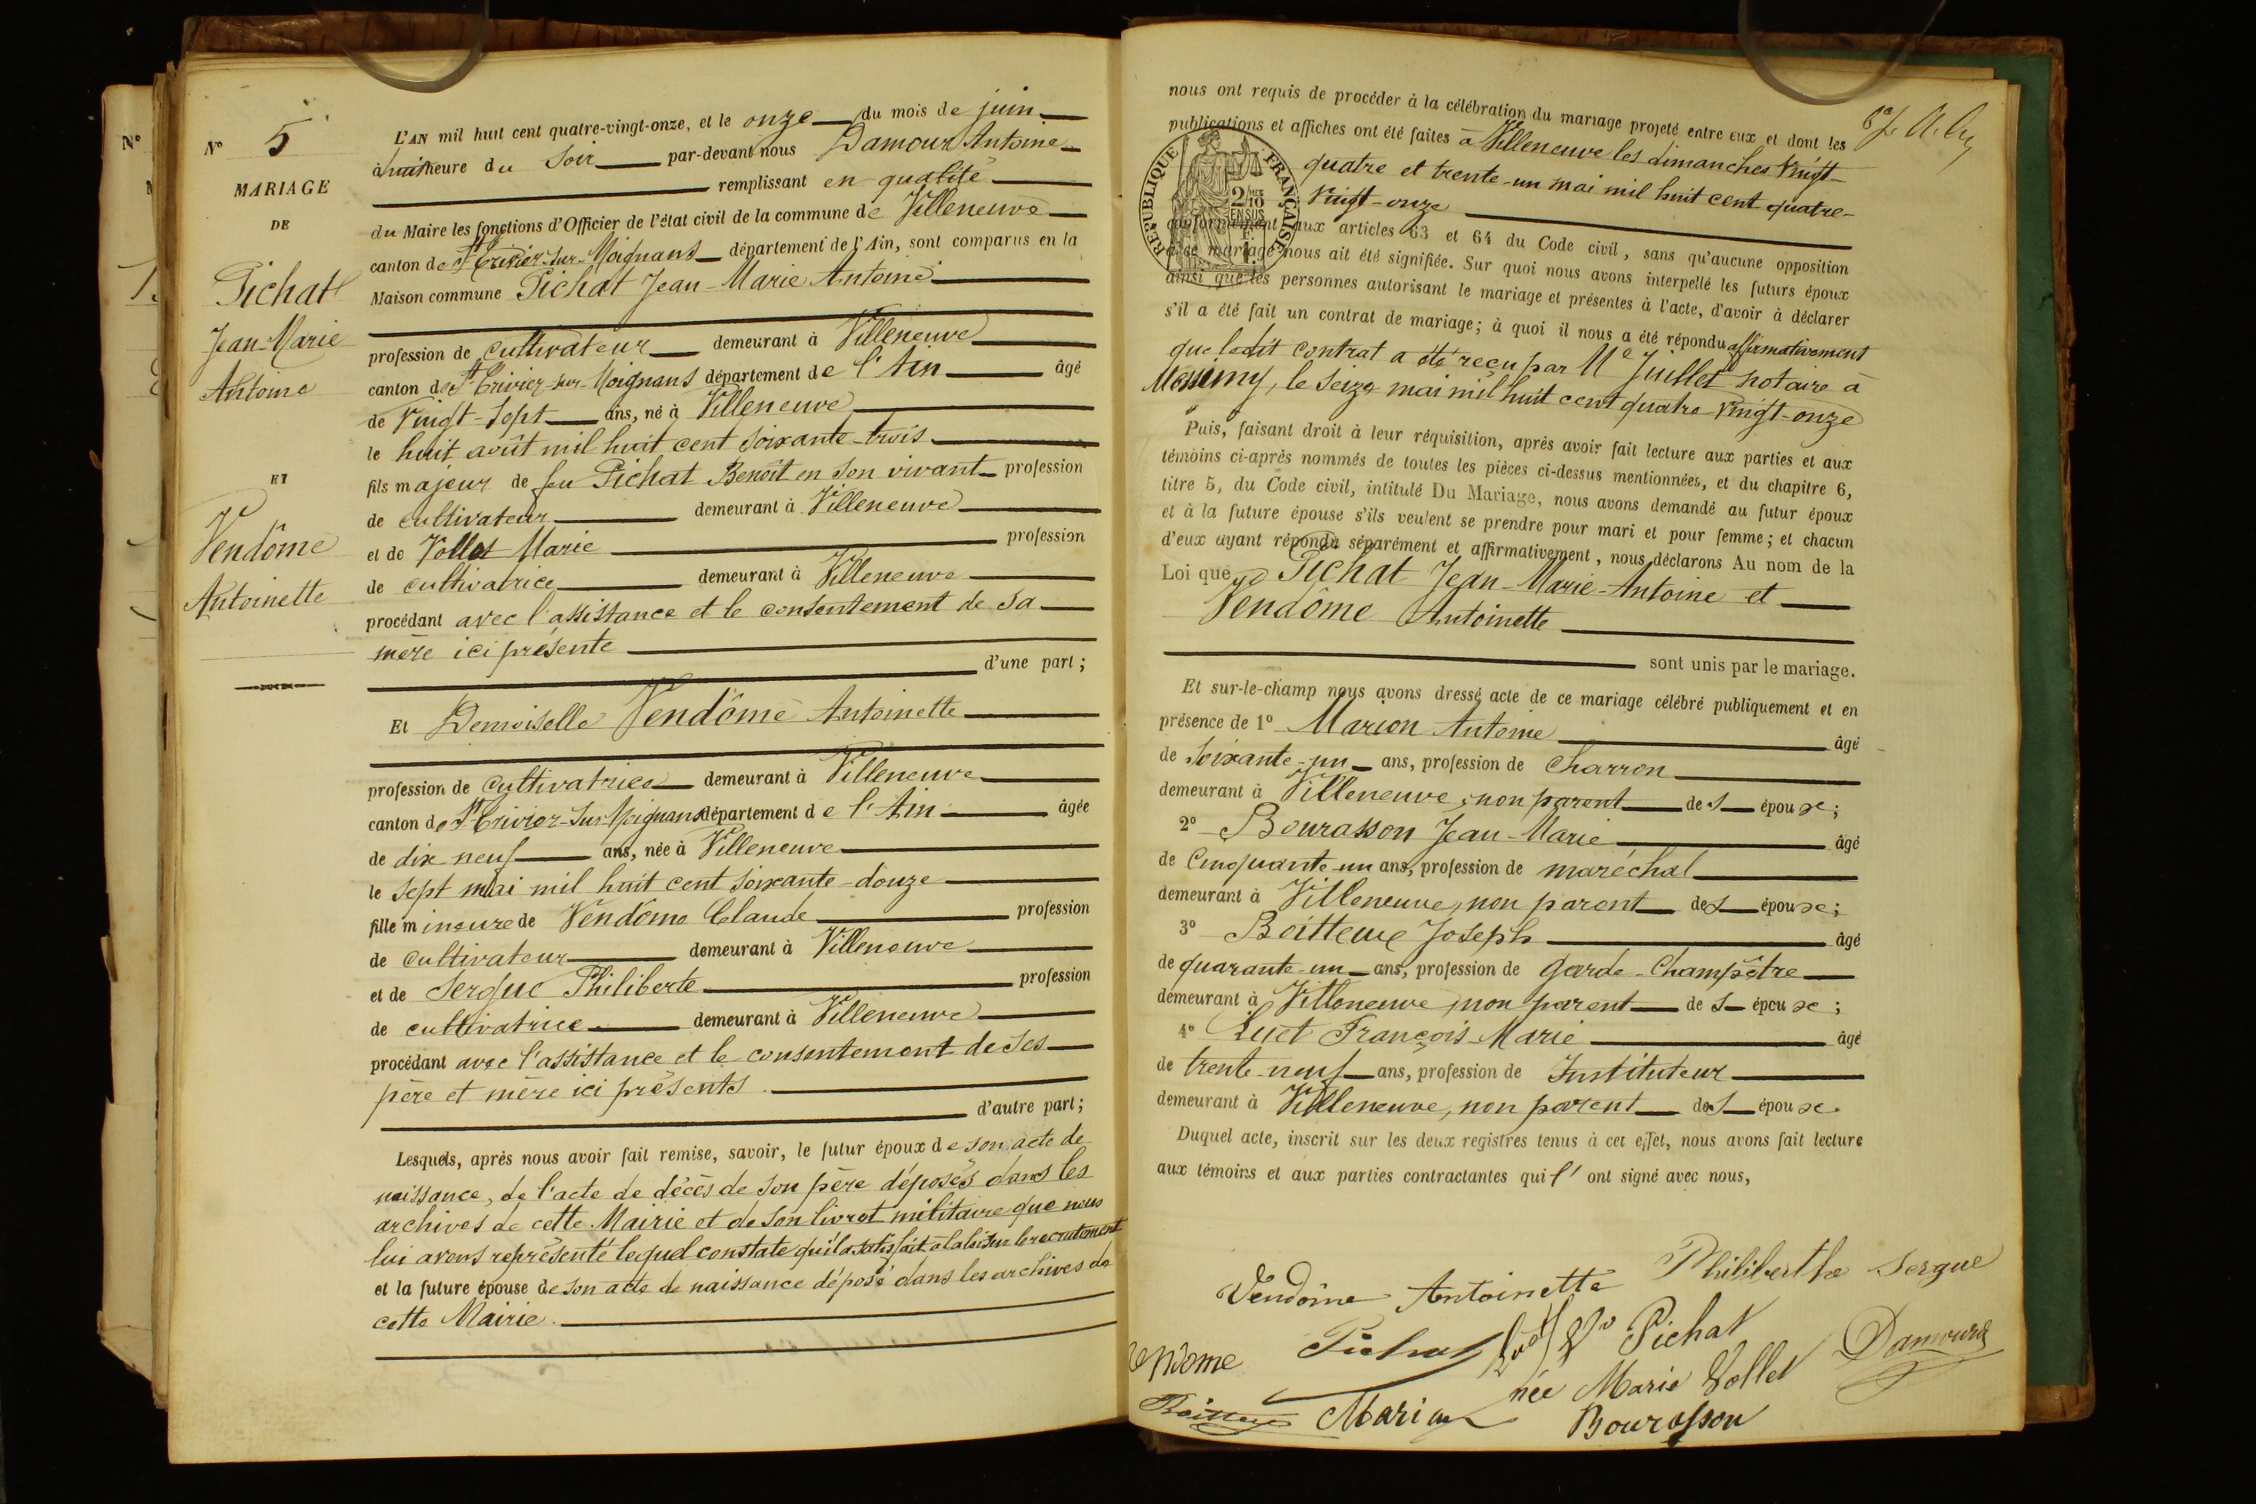 N° 5
MARIAGE
DE
Pichat
Jean-Marie
Antoine
ET
Vendôme
Antoinette
L'AN mil huit cent quatre-vingt-onze, et le onze du mois de juin
à huit heure du soir par-devant nous Damour Antoine
remplissant en qualité
du Maire les fonctions d'Officier de l'état civil de la commune de Villeneuve
canton de St Trivier-sur-Moignans département de l'Ain, sont comparus en la
Maison commune Pichat Jean-Marie Antoine
profession de cultivateur demeurant à Villeneuve
canton de St Trivier-sur-Moignans département de l'Ain âgé
de Vingt-sept ans, né à Villeneuve
le huit août mil huit cent soixante-trois
fils majeur de feu Pichat Benoît en son vivant profession
de cultivateur demeurant à Villeneuve
et de Vollet Marie profession
de cultivatrice demeurant à Villeneuve
procédant avec l'assistance et le consentement de sa
mère ici présente
d'une part;
Et Demoiselle Vendôme Antoinette
profession de cultivatrice demeurant à Villeneuve
canton de St Trivier-sur-Moignans département de l'Ain âgée
de dix-neuf ans, née à Villeneuve
le sept mai mil huit cent soixante-douze
fille mineure de Vendôme Claude profession
de cultivateur demeurant à Villeneuve
et de Sergue Philiberte profession
de cultivatrice demeurant à Villeneuve
procédant avec l'assistance et le consentement de ses
père et mère ici présents
d'autre part;
Lesquels, après nous avoir fait remise, savoir, le futur époux de son acte de
naissance, de l'acte de décès de son père déposés dans les
archives de cette Mairie et de son livret militaire que nous
lui avons représenté lequel constate qu'il a satisfait à la loi sur le recrutement
et la future épouse de son acte de naissance déposé dans les archives de
cette Mairie.
nous ont requis de procéder à la célébration du mariage projeté entre eux et dont les
publications et affiches ont été faites à Villeneuve les dimanches Vingt-
quatre et trente-un mai mil huit cent quatre-
Vingt-onze
conformément aux articles 63 et 64 du Code civil, sans qu'aucune opposition
à ce mariage nous ait été signifiée. Sur quoi nous avons interpellé les futurs époux
ainsi que les personnes autorisant le mariage et présentes à l'acte, d'avoir à déclarer
s'il a été fait un contrat de mariage; à quoi il nous a été répondu affirmativement
que ledit contrat a été reçu par Me Juillet notaire à
Messimy, le seize mai mil huit cent quatre Vingt-onze
RÉPUBLIQUE FRANÇAISE
2/10 EN SUS
Puis, faisant droit à leur réquisition, après avoir fait lecture aux parties et aux
témoins ci-après nommés de toutes les pièces ci-dessus mentionnées, et du chapitre 6,
titre 5, du Code civil, intitulé Du Mariage, nous avons demandé au futur époux
et à la future épouse s'ils veulent se prendre pour mari et pour femme; et chacun
d'eux ayant répondu séparément et affirmativement, nous déclarons Au nom de la
Loi que Pichat Jean-Marie-Antoine et
Vendôme Antoinette
sont unis par le mariage.
Et sur-le-champ nous avons dressé acte de ce mariage célébré publiquement et en
présence de 1° Marion Antoine âgé
de soixante-un ans, profession de charron
demeurant à Villeneuve, non parent des époux;
2° Bourasson Jean-Marie âgé
de Cinquante-un ans, profession de maréchal
demeurant à Villeneuve, non parent des époux;
3° Boitteux Joseph âgé
de quarante-un ans, profession de Garde-Champêtre
demeurant à Villeneuve, non parent des époux;
4° Luet François-Marie âgé
de trente-neuf ans, profession de Instituteur
demeurant à Villeneuve, non parent des époux.
Duquel acte, inscrit sur les deux registres tenus à cet effet, nous avons fait lecture
aux témoins et aux parties contractantes qui l'ont signé avec nous,
Vendôme Antoinette Philiberthe Sergue
Vendome Pichat Luet Ve Pichat Damour
née Marie Vollet
Boitteux Marion Bourasson